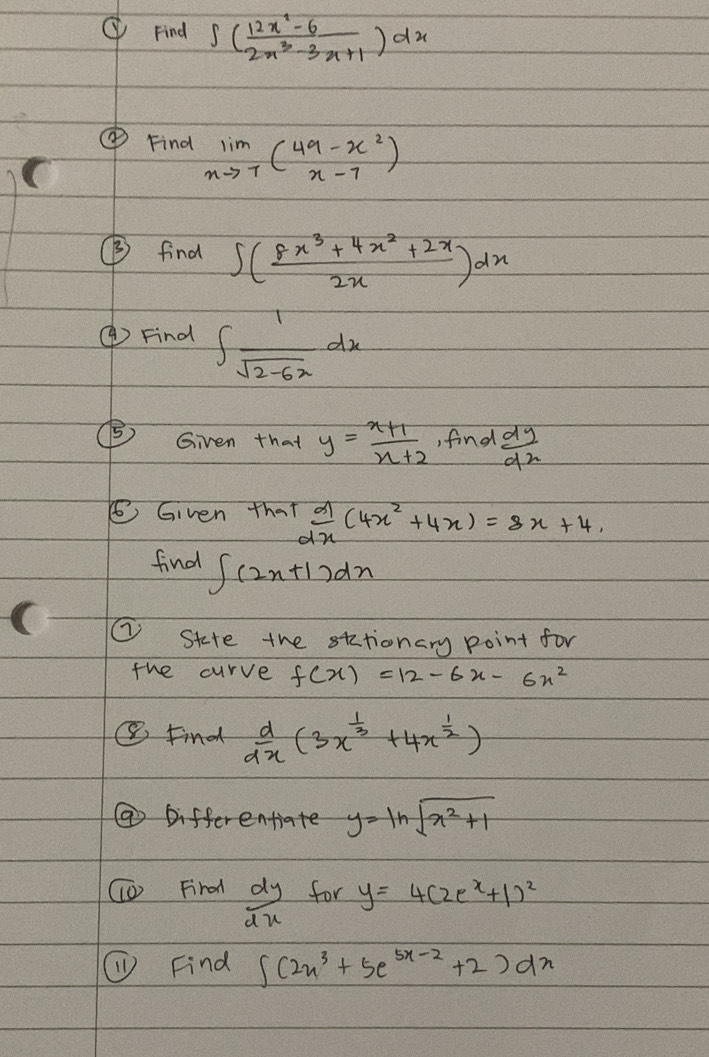 ① Find ∫ ( (12x² - 6)/(2x³ - 3x + 1) ) dx
② Find lim x→7 ( (49 - x²)/(x - 7) )
③ find ∫ ( (8x³ + 4x² + 2x)/(2x) ) dx
④ Find ∫ 1/√(2-6x) dx
⑤ Given that y = (x+1)/(x+2), find dy/dx
⑥ Given that d/dx (4x² + 4x) = 8x + 4,
find ∫(2x+1)dx
⑦ State the stationary point for
the curve f(x) = 12 - 6x - 6x²
⑧ Find d/dx (3x^(1/3) + 4x^(1/2))
⑨ Differentiate y = ln √(x² + 1)
⑩ Find dy/dx for y = 4(2e^x + 1)²
⑪ Find ∫(2x³ + 5e^(5x-2) + 2) dx